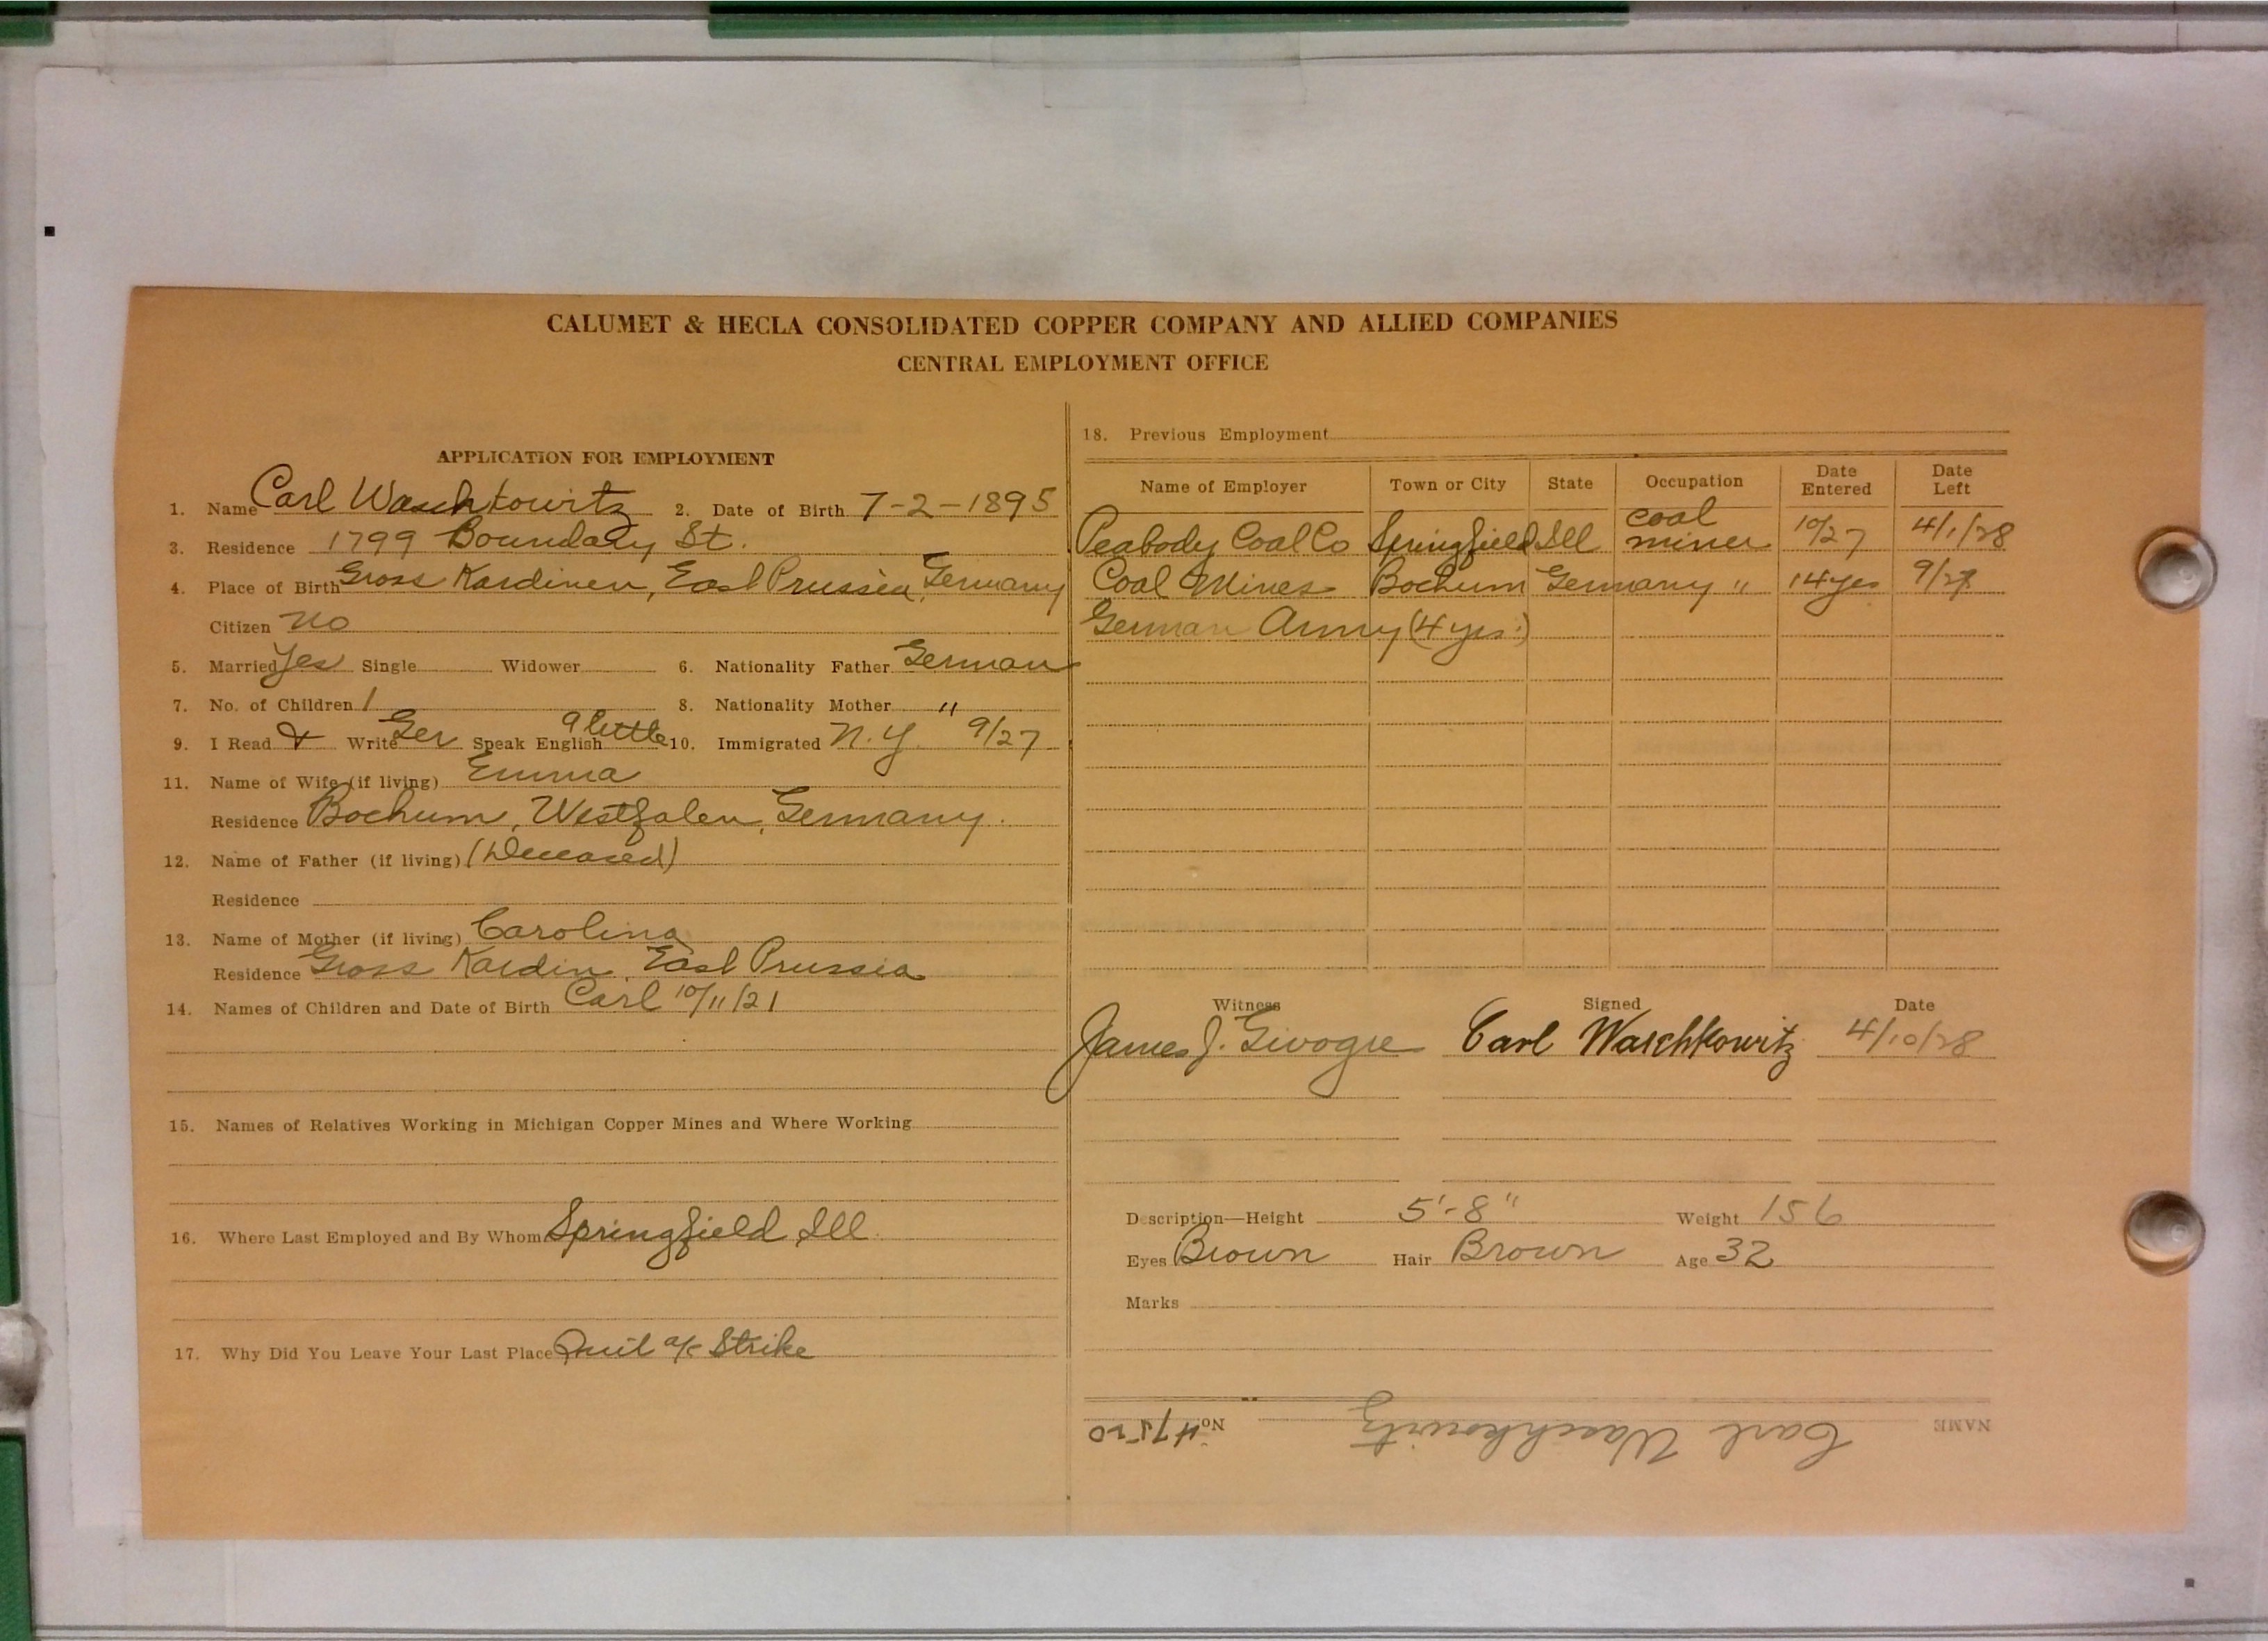 CALUMET & HECLA CONSOLIDATED COPPER COMPANY AND ALLIED COMPANIES
CENTRAL EMPLOYMENT OFFICE
APPLICATION FOR EMPLOYMENT
1. Name Carl Waschkowitz 2. Date of Birth 7-2-1895
3. Residence 1799 Boundary St.
4. Place of Birth Gross Kardinen, East Prussia, Germany
Citizen No
5. Married Yes Single Widower 6. Nationality Father German
7. No. of Children 1 8. Nationality Mother "
9. I Read & Write Ger Speak English a little 10. Immigrated N.Y. 9/27
11. Name of Wife (if living) Emma
Residence Bochum, Westfalen, Germany.
12. Name of Father (if living) (Deceased)
Residence
13. Name of Mother (if living) Carolina
Residence Gross Kardin, East Prussia
14. Names of Children and Date of Birth Carl 10/11/21
15. Names of Relatives Working in Michigan Copper Mines and Where Working
16. Where Last Employed and By Whom Springfield Ill.
17. Why Did You Leave Your Last Place Quit a/c Strike
18. Previous Employment
Name of Employer Town or City State Occupation Date Entered Date Left
Peabody Coal Co Springfield Ill coal miner 10/27 4/1/28
Coal Mines Bochum Germany " 14 yrs 9/27
German Army (4 yrs.)
Witness Signed Date
James J. Carl Waschkowitz 4/10/28
Description—Height 5'-8" Weight 156
Eyes Brown Hair Brown Age 32
Marks
NAME Carl Waschkowitz No. 47520